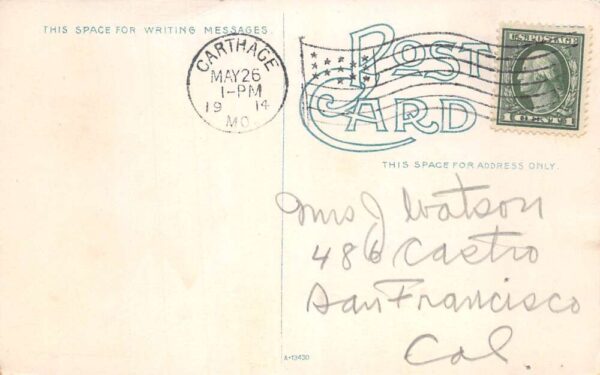 THIS SPACE FOR WRITING MESSAGES
CARTHAGE
MAY 26
1-PM
19 14
MO.
POST CARD
U.S. POSTAGE
1 CENT 1
THIS SPACE FOR ADDRESS ONLY.
Mrs J Watson
486 Castro
San Francisco
Cal.
A-13430